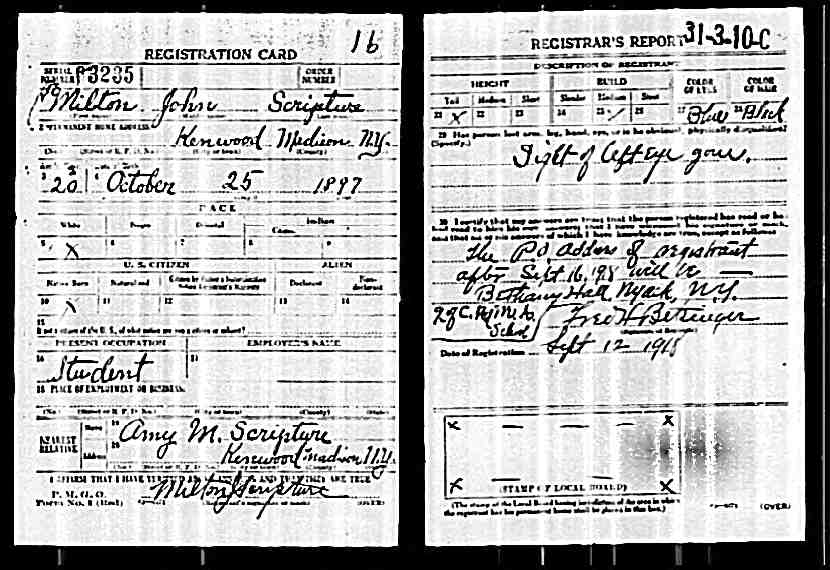 REGISTRATION CARD 16
SERIAL NUMBER 3235 ORDER NUMBER
Milton John Scripture
2 PERMANENT HOME ADDRESS
Kenwood Madison N.Y.
20 October 25 1897
RACE
White Negro Oriental Indian
Citizen
5 X 6 7 8 9
U. S. CITIZEN ALIEN
Native Born Naturalized Declarant Non-declarant
10 X 11 12 13 14
15
If not a citizen of the U. S., of what nation are you a citizen or subject?
PRESENT OCCUPATION EMPLOYER'S NAME
16 Student 17
18 PLACE OF EMPLOYMENT OR BUSINESS
(No.) (Street or R. F. D. No.) (City or town) (County) (State)
NEAREST RELATIVE
Name 19 Amy M. Scripture
Address 20 Kenwood Madison N.Y.
I AFFIRM THAT I HAVE VERIFIED ABOVE ANSWERS AND THAT THEY ARE TRUE
P. M. G. O.
Form No. 1 (Red) Milton Scripture (OVER)
REGISTRAR'S REPORT 31-3-10-C
DESCRIPTION OF REGISTRANT
HEIGHT BUILD COLOR OF EYES COLOR OF HAIR
Tall Medium Short Slender Medium Stout
21 X 22 23 24 25 ✓ 26 27 Blue 28 Black
29 Has person lost arm, leg, hand, eye, or is he obviously physically disqualified?
(Specify.)
Sight of left eye gone.
30 I certify that my answers are true; that the person registered has read or has
had read to him his own answers; that I have witnessed his signature or mark,
and that all of his answers of which I have knowledge are true, except as follows:
The P.O. address of registrant
after Sept. 16, 1918 will be
Bethany Hall, Nyack, N.Y.
School
Date of Registration Sept 12 1918
(STAMP OF LOCAL BOARD)
(The stamp of the Local Board having jurisdiction of the area in which
the registrant has his permanent home shall be placed in this box.)
(OVER)